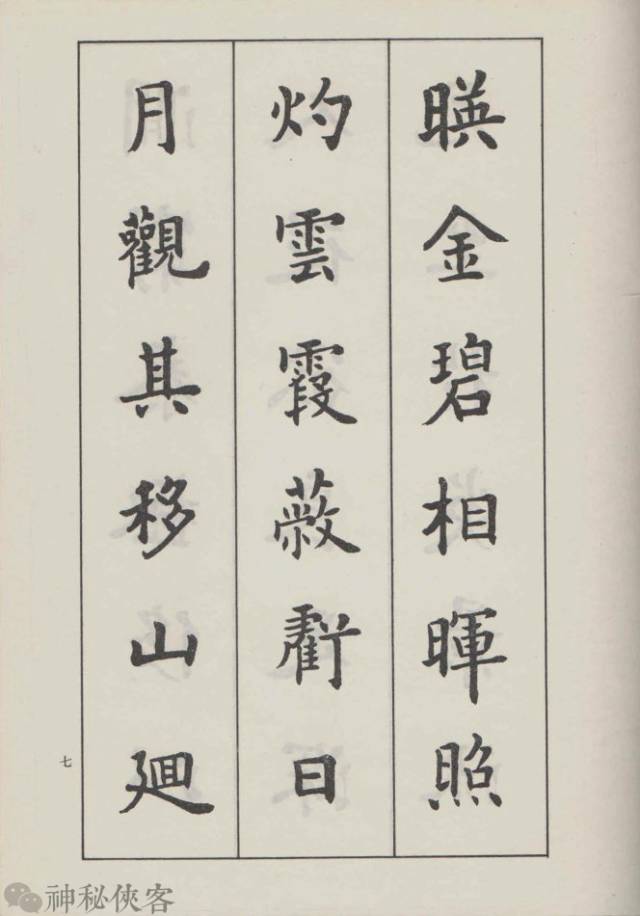 暎金碧相暉照
灼雲霞蔽虧日
月觀其移山廻
七
神秘俠客